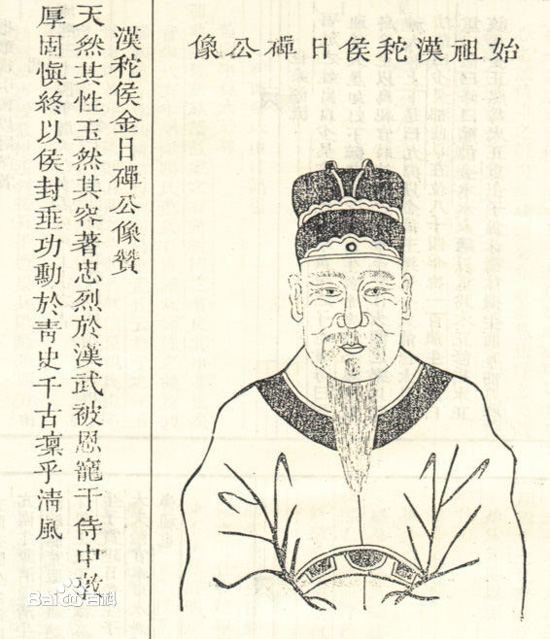 始祖漢秺侯日磾公像
漢秺侯金日磾公像贊
天然其性玉然其容著忠烈於漢武被恩寵于侍中
厚固愼終以侯封垂功勳於青史千古稟乎清風
Bai百科